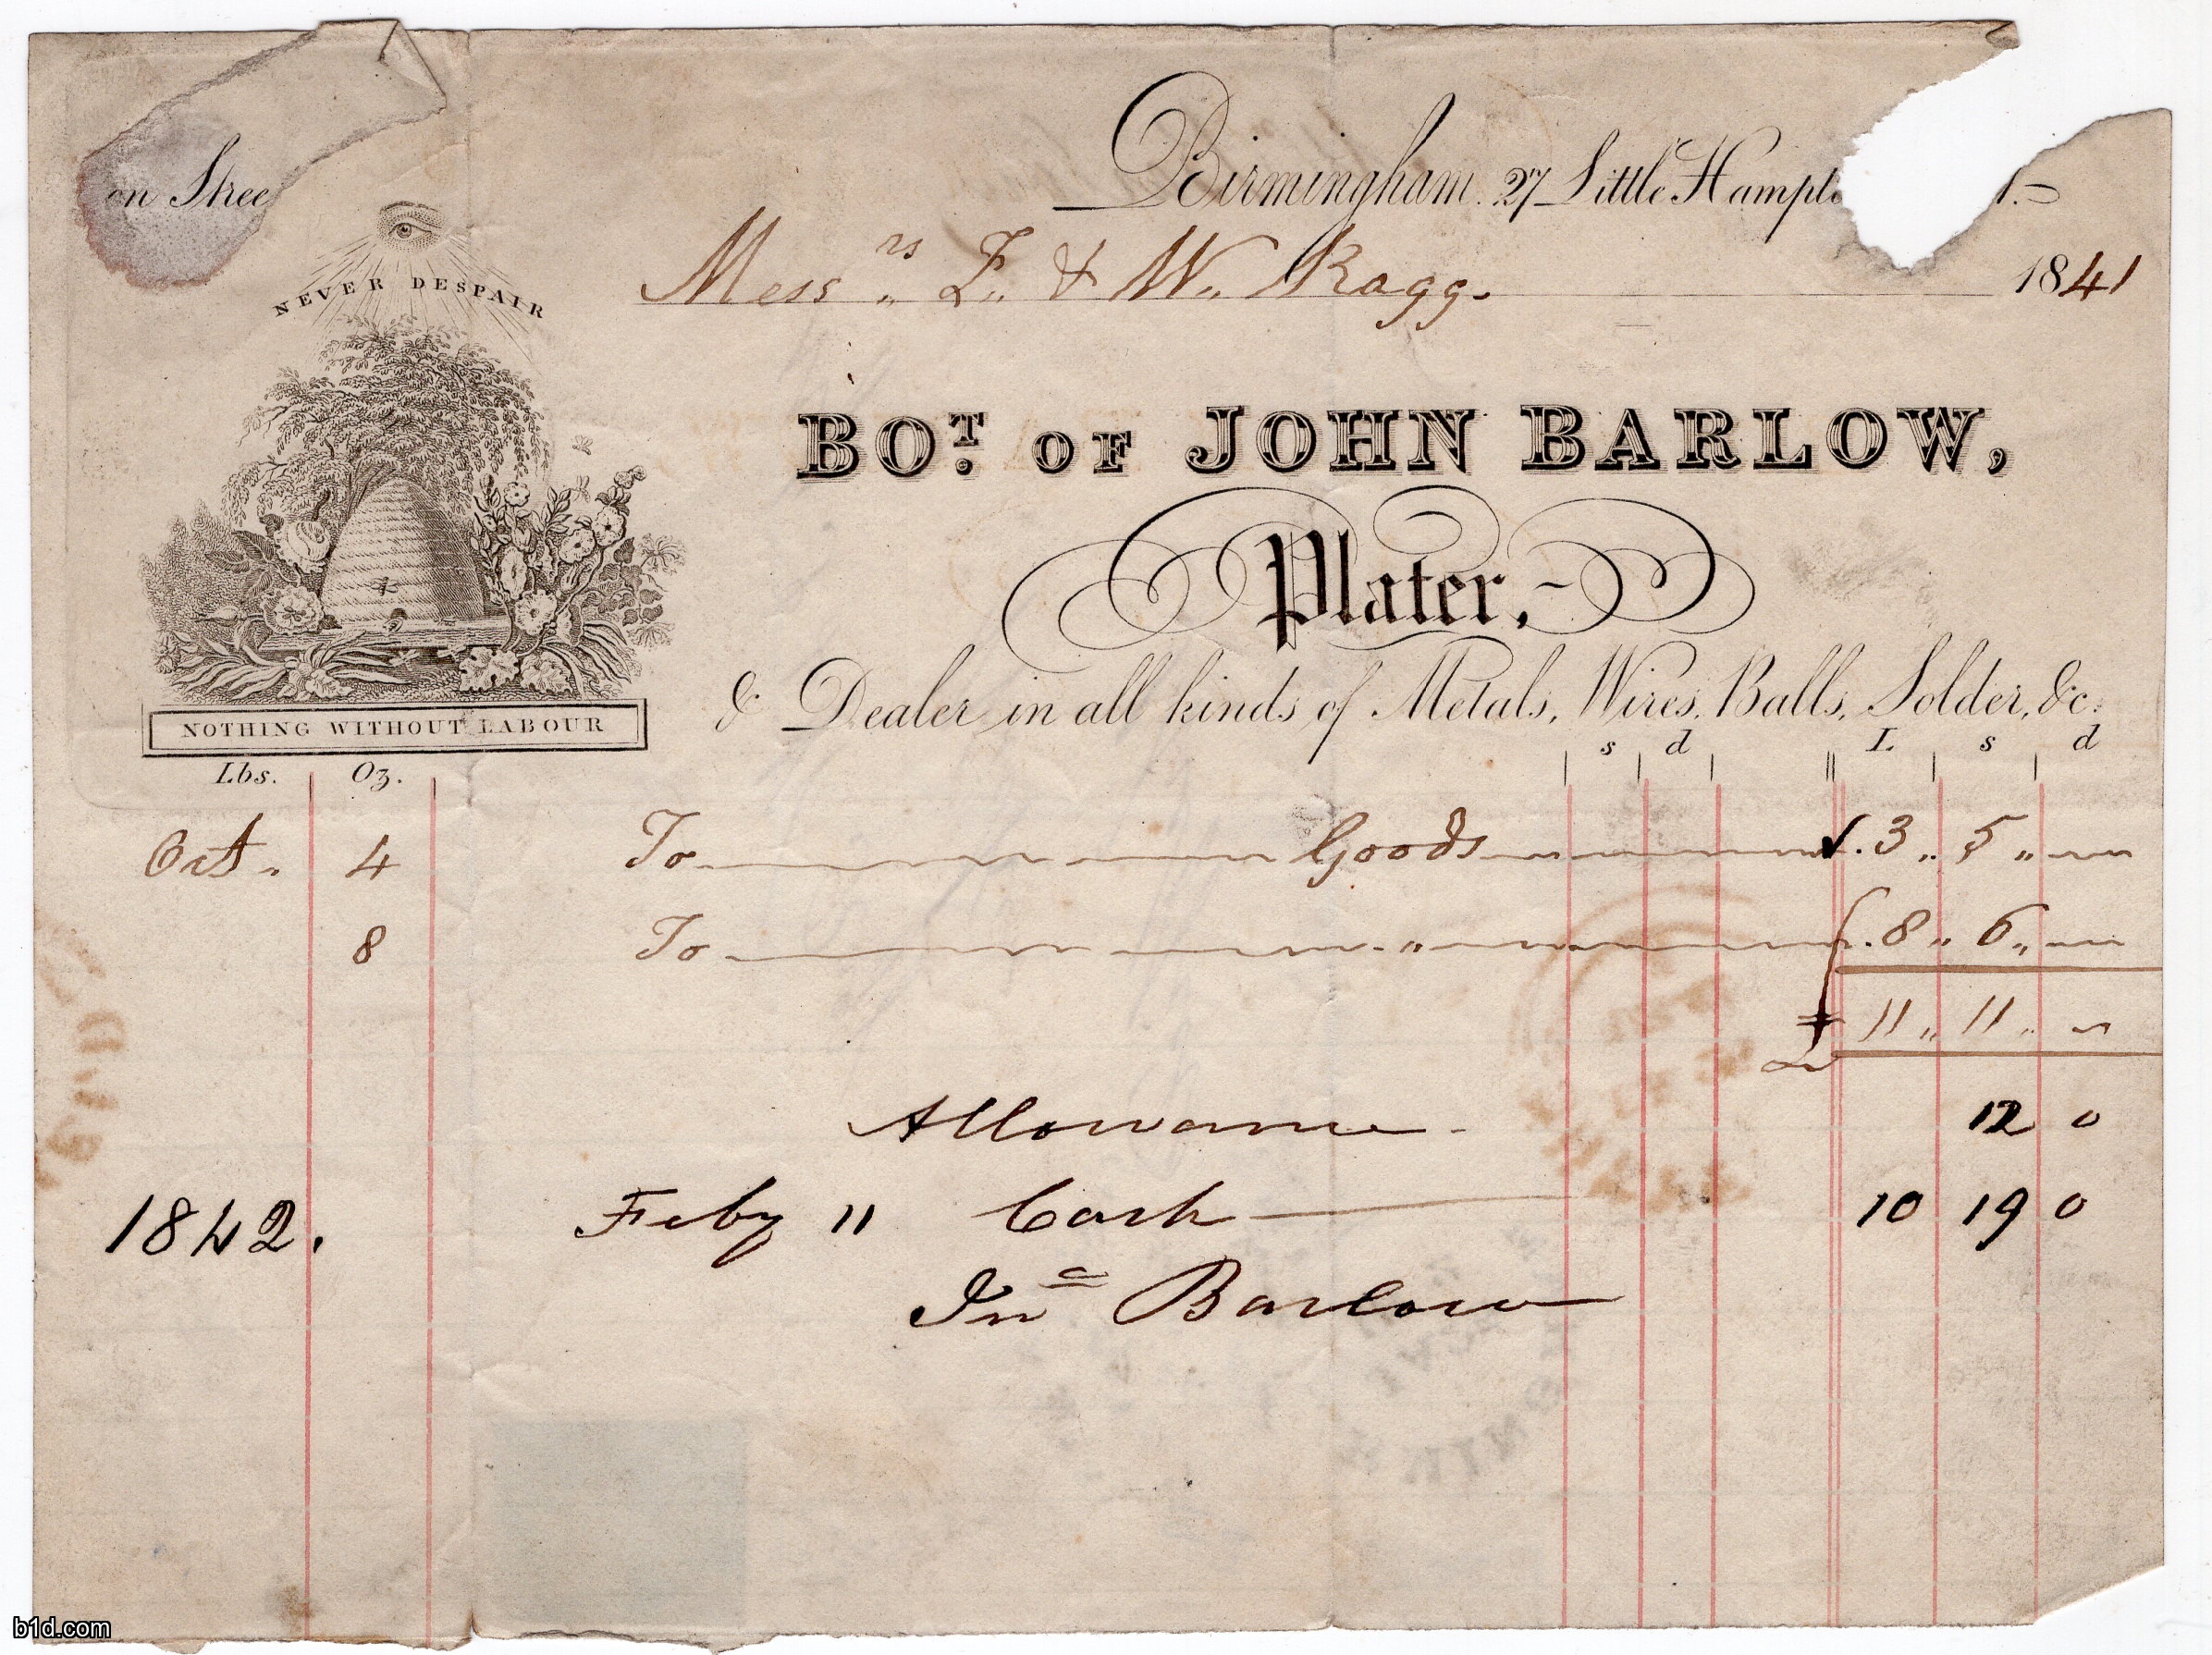 Birmingham. 27 Little Hampto t.
on Stree
NEVER DESPAIR
Messrs. & W. Ragg.
1841
BOT. OF JOHN BARLOW,
Plater,
& Dealer in all kinds of Metals, Wires, Balls, Solder, &c.
NOTHING WITHOUT LABOUR
Lbs. Oz. s d L s d
Oct. 4 To Goods 3 " 5 "
8 To " 8 " 6 "
£ 11 " 11 "
Allowance 12 0
1842. Feby 11 Cash 10 19 0
Jno Barlow
b1d.com